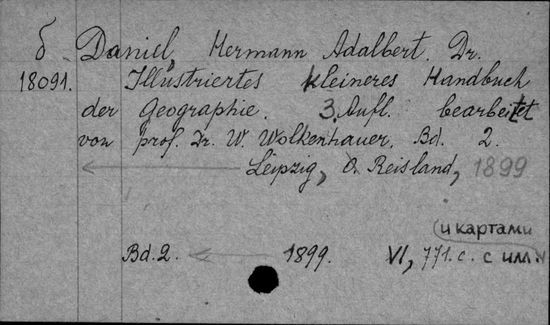 δ Daniel, Hermann Adalbert, Dr.
18091. Illustriertes kleineres Handbuch
der Geographie. 3. Aufl. bearbeitet
von prof. Dr. W. Wolkenhauer. Bd. 2.
Leipzig, O. Reisland, 1899
и картами
Bd. 2. 1899. VI, 771. с. с илл.